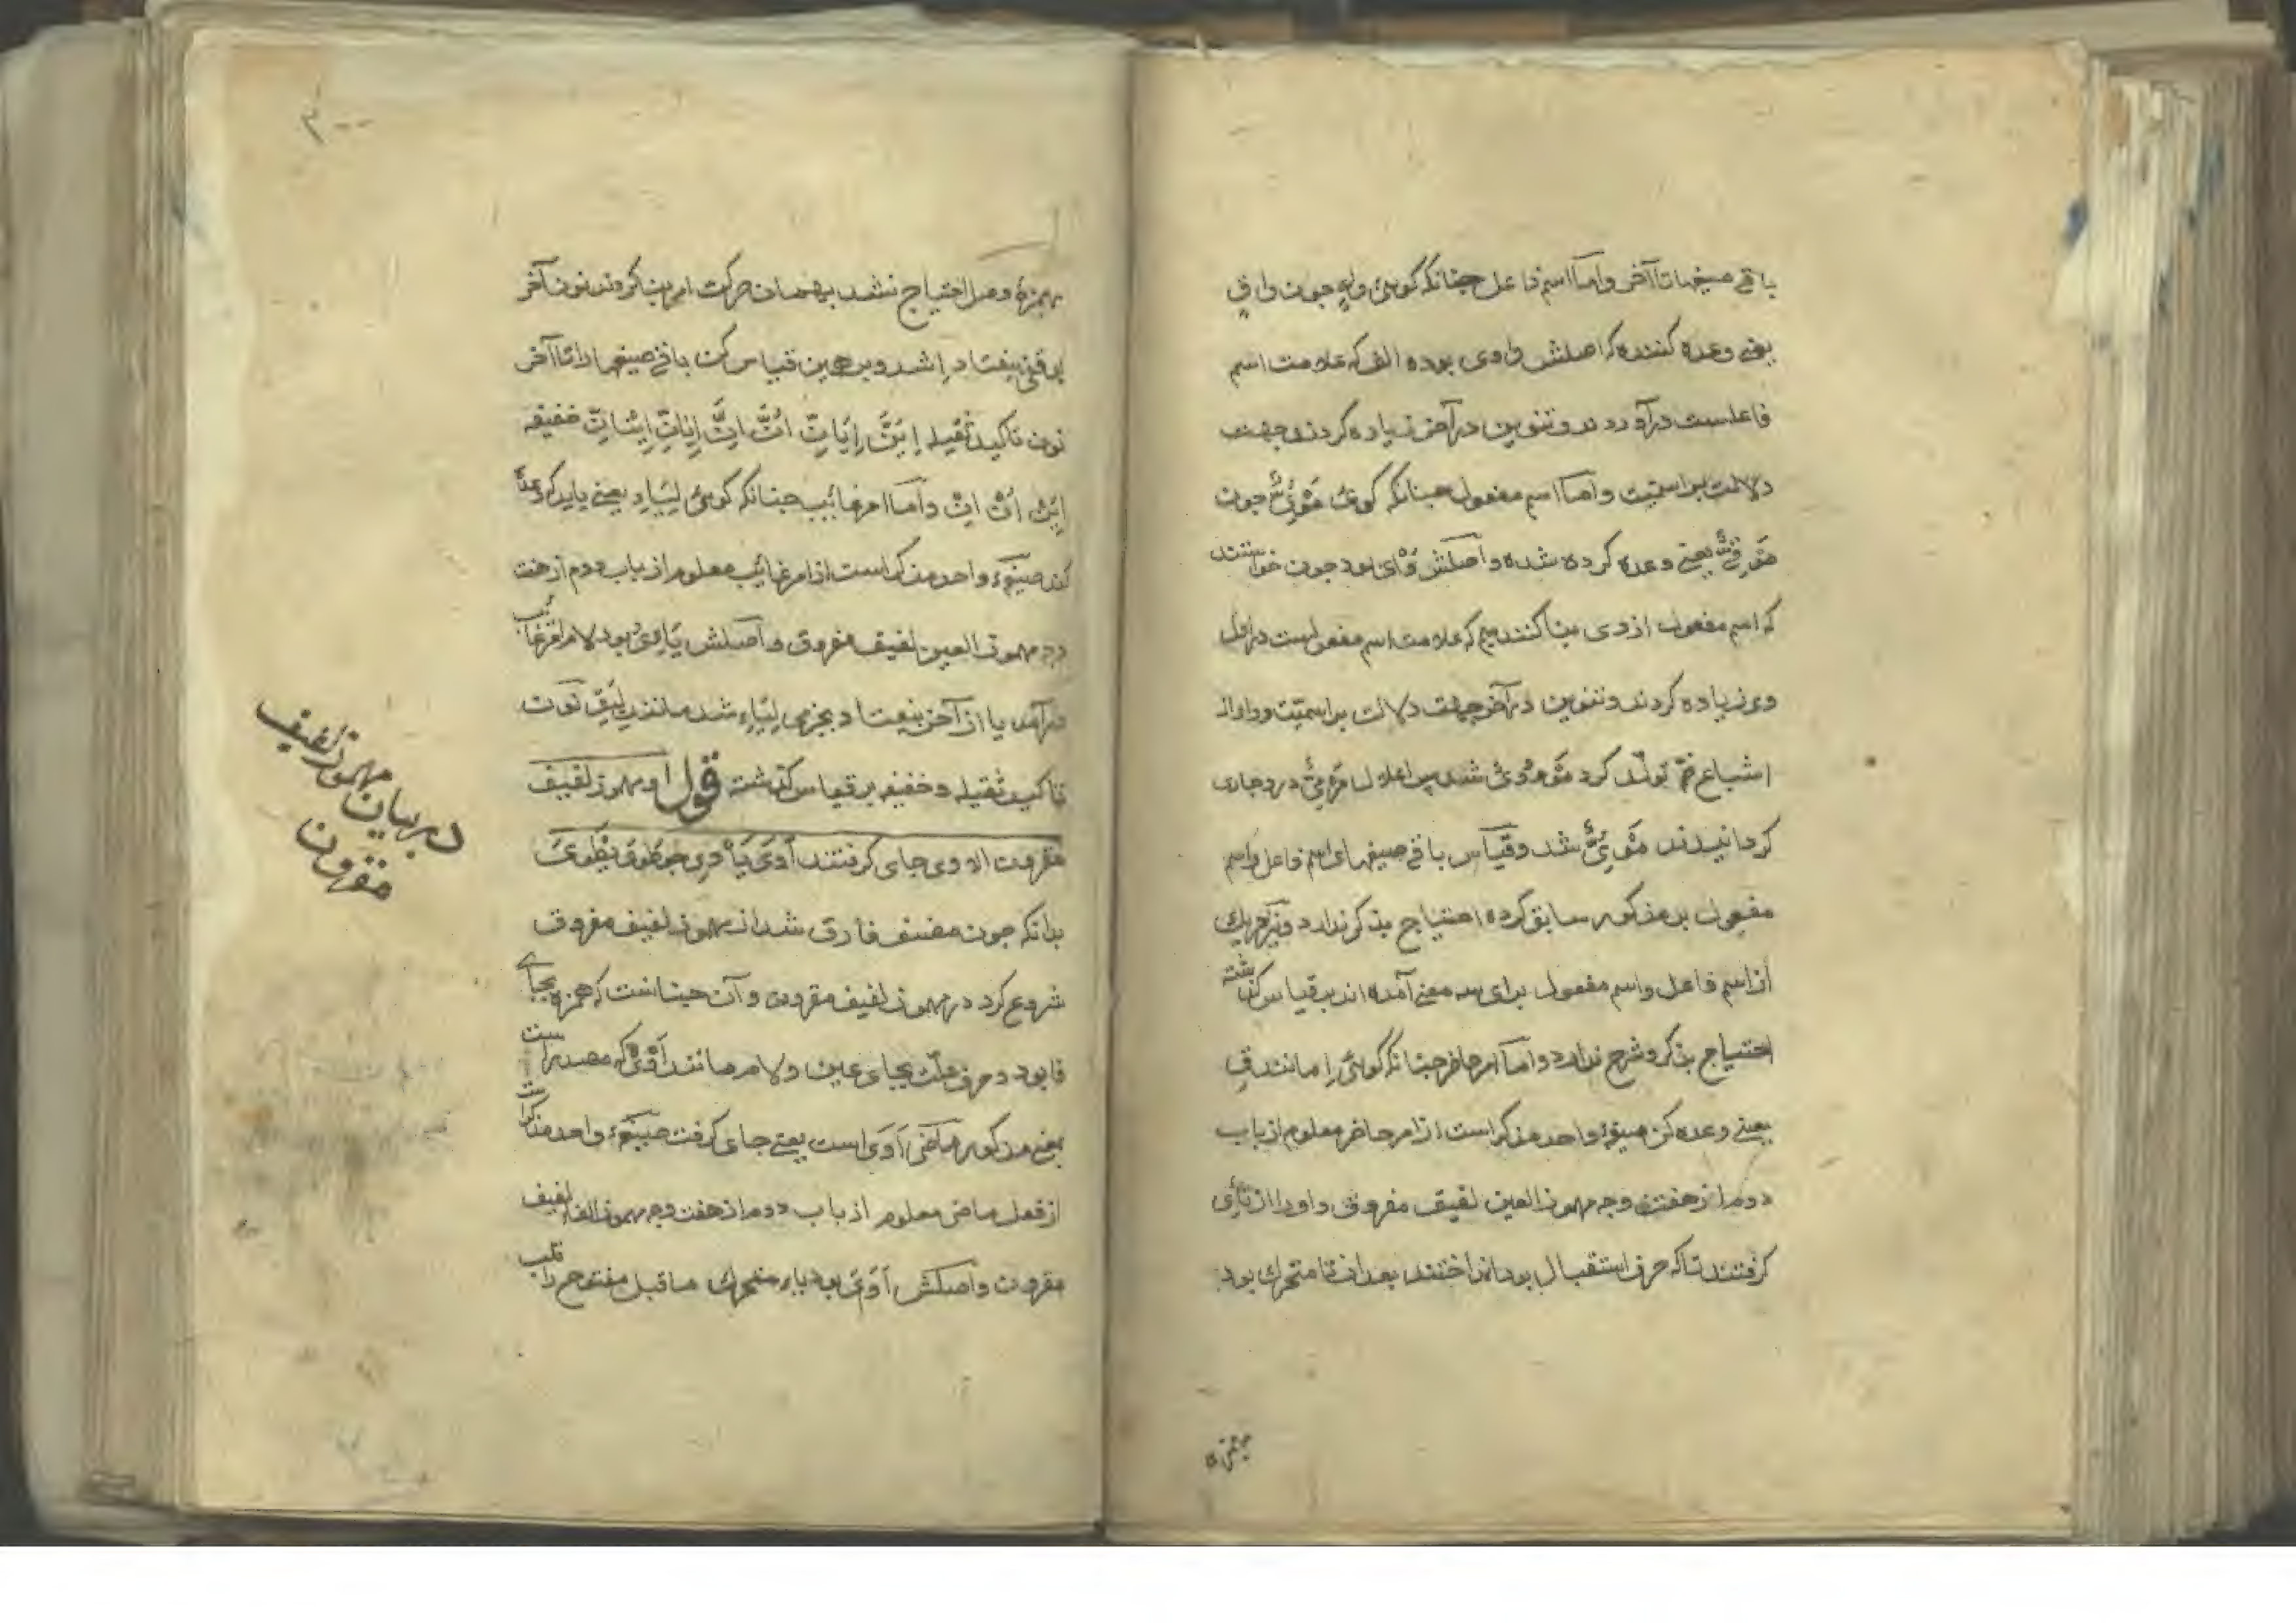 باقی صیغها تا آخر و اما اسم فاعل چنانکه گوئی واءٍ چون واقٍ
یعنی وعده کننده که اصلش وائی بوده الف که علامت اسم
فاعلست درآوردند و تنوین در آخر زیاده کردند جهت
دلالت بر اسمیت و اما اسم مفعول چنانکه گوئی مَوْئِیٌّ چون
مَوْقِیٌّ یعنی وعده کرده شده و اصلش وَأْی بود چون خواستند
که اسم مفعول از وی بنا کنند میم که علامت اسم مفعولست در اول
وی زیاده کردند و تنوین در آخر جهت دلالت بر اسمیّت و واو از
اشباع ضمّه تولّد کرد مَوْءُوْیٌ شد پس اعلال مَرْمِیٌّ درو جاری
گردانیدند مَوْئِیٌّ شد و قیاس باقی صیغهای اسم فاعل و اسم
مفعول بر مذکور سابق کرده احتیاج بذکر ندارد و نیز هر یک
از اسم فاعل و اسم مفعول برای سه معنی آمده‌اند بر قیاس گذشته
احتیاج بذکر و شرح ندارد و امّا امر حاضر چنانکه گوئی اِ مانند قِ
یعنی وعده کن صیغهٔ واحد مذکر است از امر حاضر معلوم از باب
دوم از هفت وجه مهموز العین لفیف مفروق و او را از تَأِی
گرفتند تا که حرف استقبال بود انداختند بعد از تا متحرک بود
بهمزه
۳۰۰
بهمزهٔ وصل احتیاج نشد بهمان حرکت امر بنا کردند نون آخر
بوقفی بیفتاد اِ شد و برین قیاس کن باقی صیغها را تا آخر
نون تاکید ثقیله اِیَنَّ اِیَانِّ اُنَّ اِنَّ اِیَانِّ اِیْنَانِّ خفیفه
اِیَنْ اُنْ اِنْ و امّا امر غائب چنانکه گوئی لِیَاءِ یعنی باید که وعده
کند صیغهٔ واحد مذکر است از امر غائب معلوم از باب دوم از هفت
وجه مهموز العین لفیف مفروق و اصلش یَاءِیُ بود لام امر غائب
درآمد یا از آخر بیفتاد بجزمی لِیَاءِ شد مانند لِیَقِ نون
تاکید ثقیله و خفیفه بر قیاس گذشته قول او مهموز لفیف
مقرون الاوی جای گرفتند اَوَیَ یَأْوِی چو طَوَیَ یَطْوِیَ
بدانکه چون مصنف فارق شد از مهموز لفیف مفروق
شروع کرد در مهموز لفیف مقرون و آن چنانست که همزه بجای
فا بود و حرف علّت بجای عین و لام مانند اَوْیٌ که مصدر است
بمعنی مذکور ماضی اَوَیَ است یعنی جای گرفت صیغهٔ واحد مذکر است
از فعل ماضی معلوم از باب دوم از هفت وجه مهموز الفاء لفیف
مقرون و اصلش اَوَیَ بود یاء متحرک ماقبل مفتوح را قلب
در بیان مهموز لفیف
مقرون